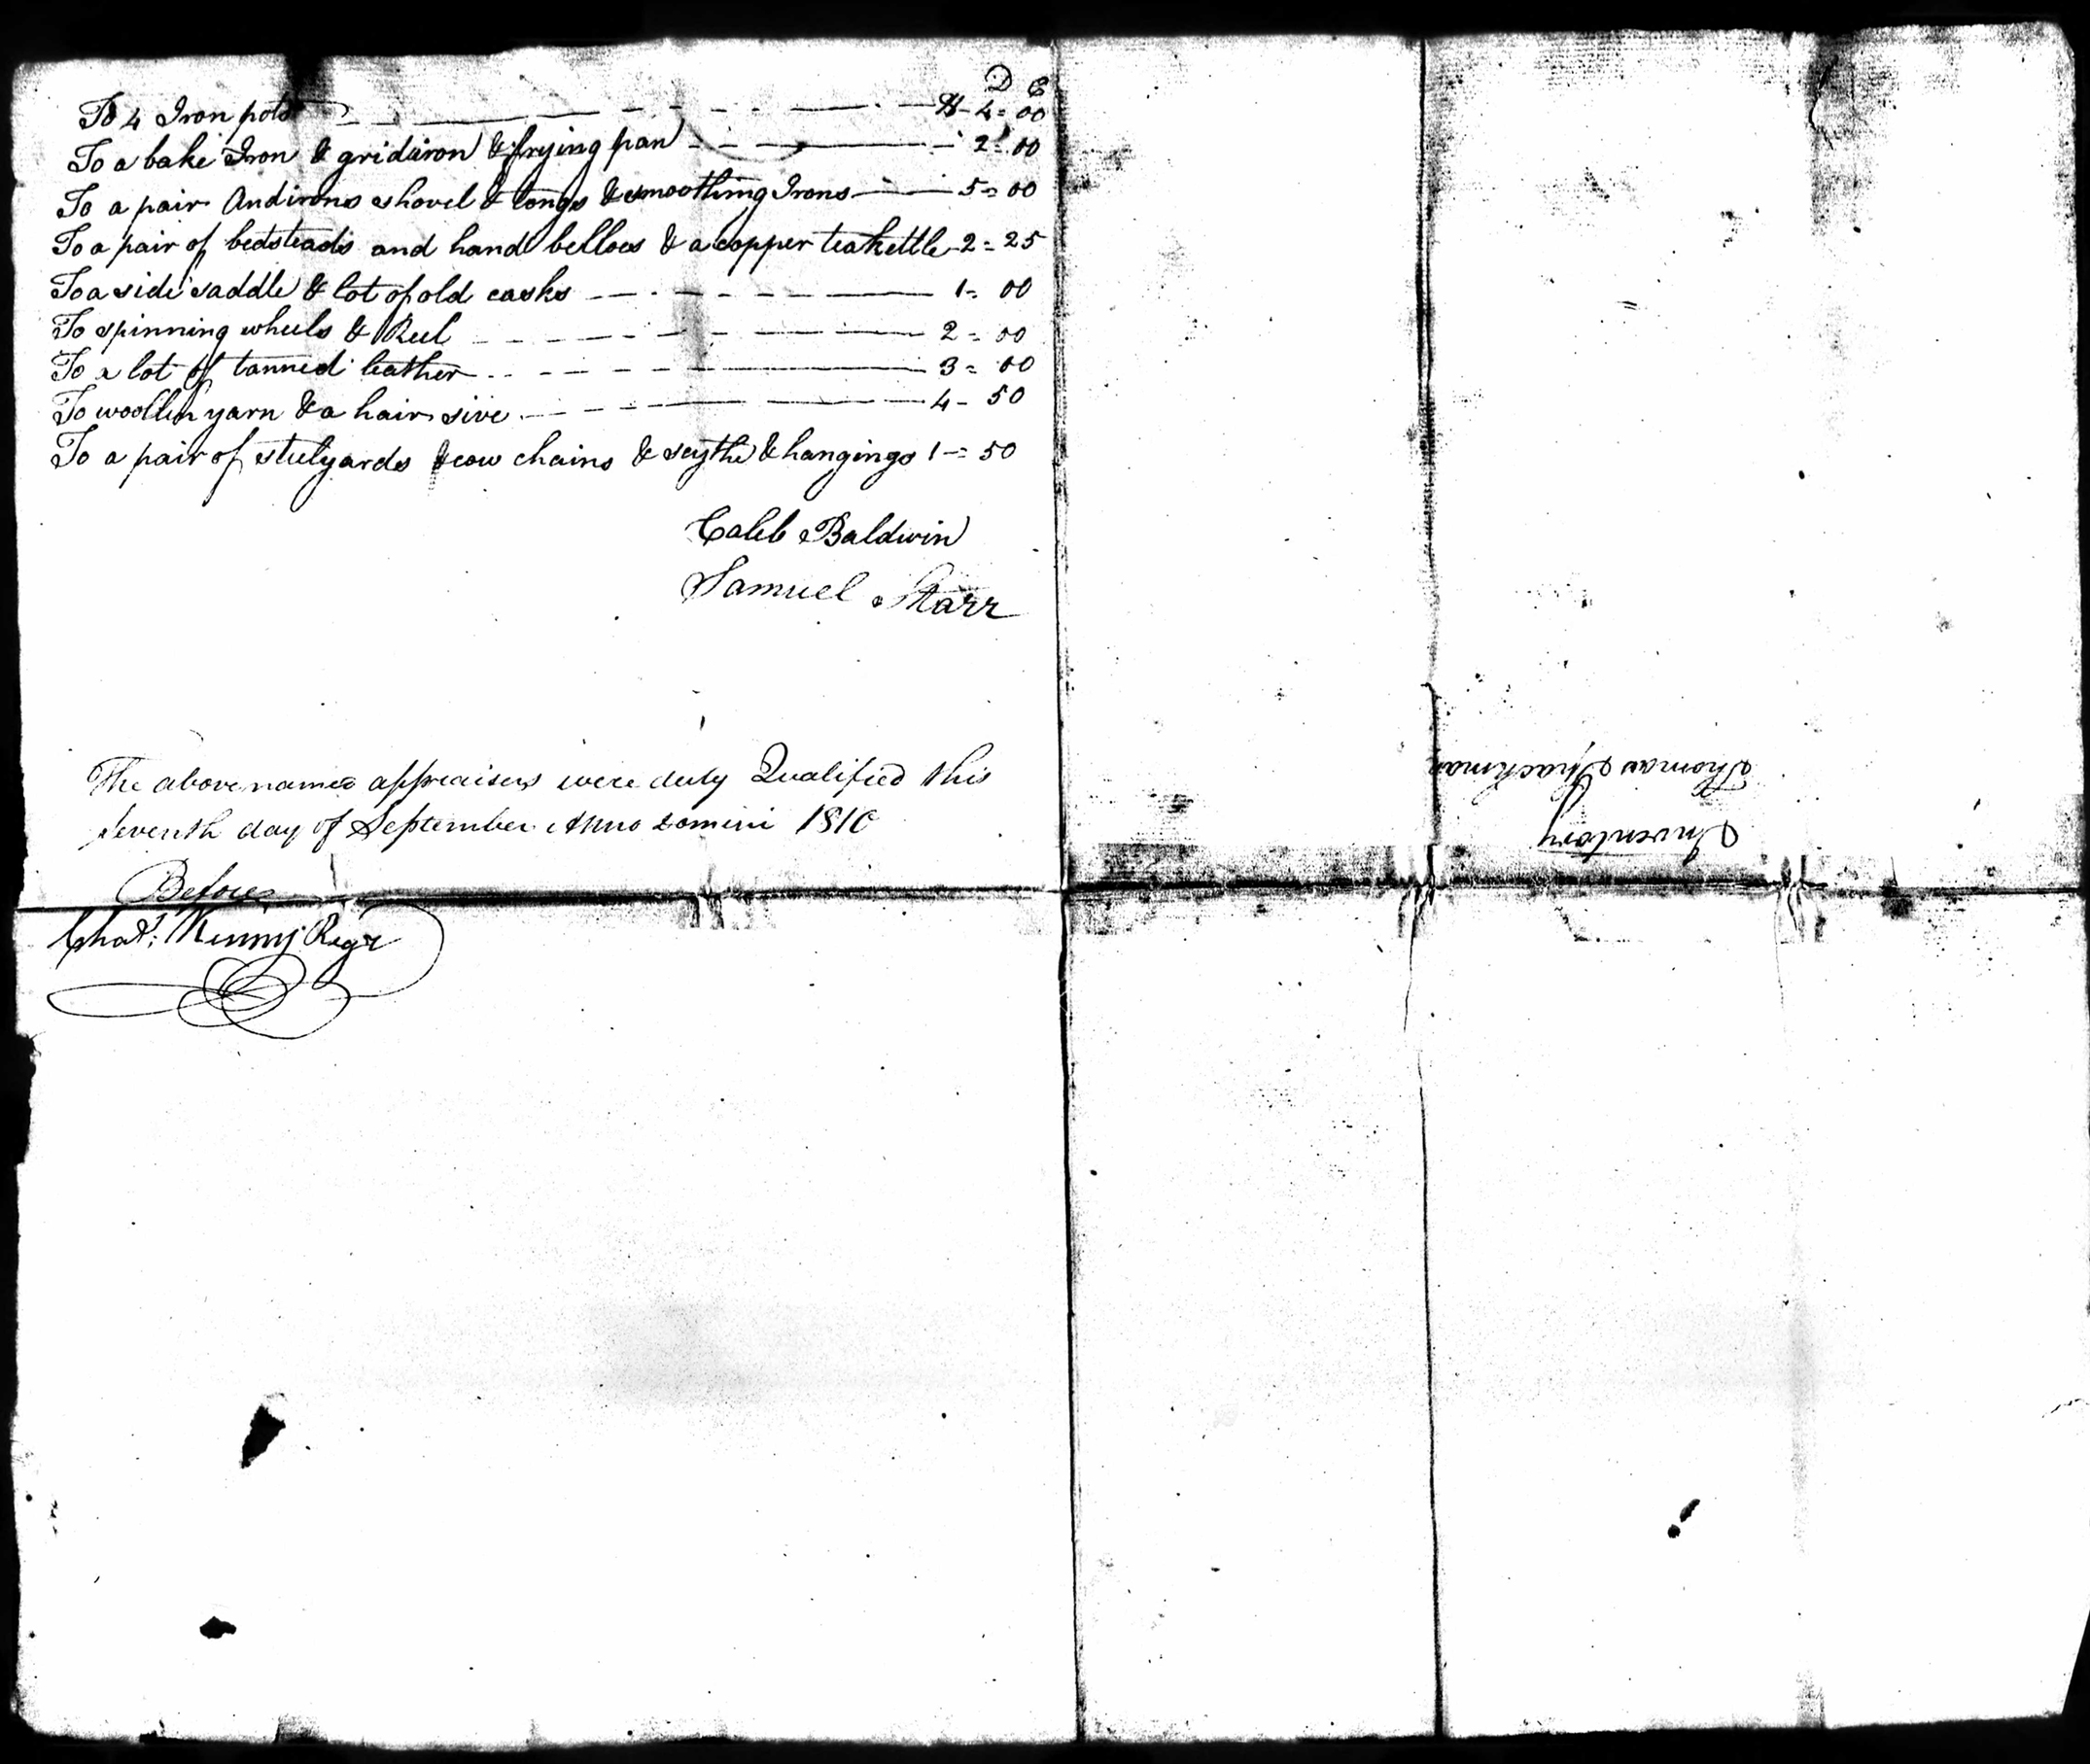 D C
To 4 Iron pots $ 4=00
To a bake Iron & gridiron & frying pan 2=00
To a pair Andirons shovel & tongs & smoothing Irons 5=00
To a pair of bedsteads and hand bellows & a copper teakettle 2=25
To a side saddle & lot of old casks 1=00
To spinning wheels & Reel 2=00
To a lot of tanned leather 3=00
To woollen yarn & a hair sive 4-50
To a pair of stulyards & cow chains & scythe & hangings 1=50
Caleb Baldwin
Samuel Starr
The above named appraisers were duly Qualified this
Seventh day of September Anno Domini 1810
Before
Chas. Kenny Regr
Inventory
Thomas Thackman